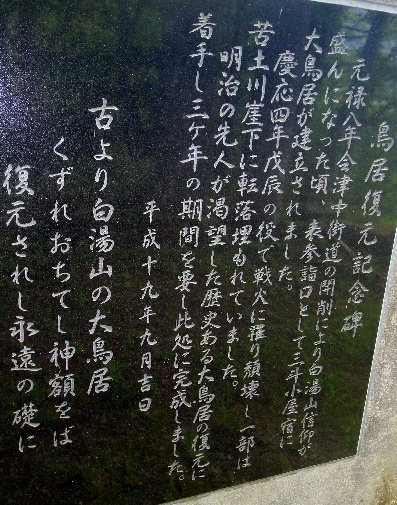 鳥居復元記念碑
元禄八年会津中街道の開削により白湯山信仰が
盛んになった頃、表参詣口として三斗小屋宿に
大鳥居が建立されました。
慶応四年戊辰の役で戦火に罹り頽壊し一部は
苦土川崖下に転落埋もれていました。
明治の先人が渇望した歴史ある大鳥居の復元に
着手し三ケ年の期間を要し此処に完成しました。
平成十九年九月吉日
古より白湯山の大鳥居
くずれおちてし神額をば
復元されし永遠の礎に